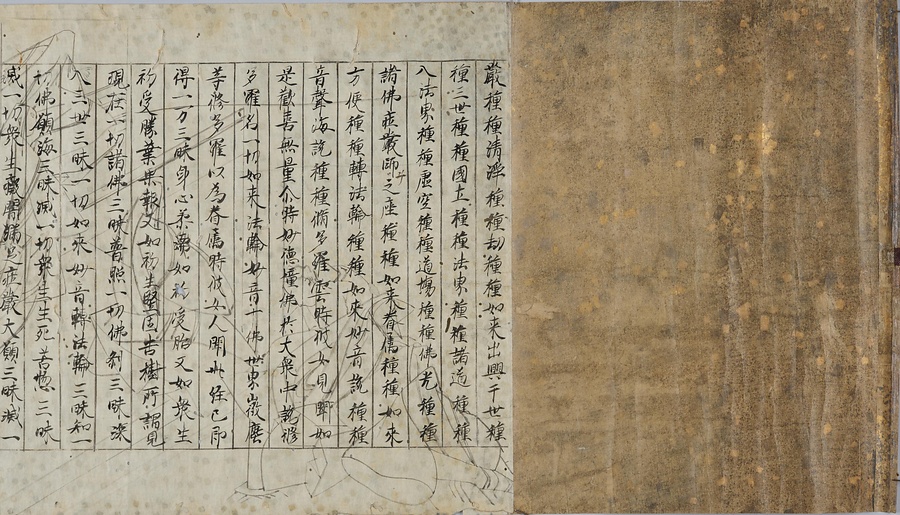 嚴種種清淨種種劫種種如來出興于世種
種三世種種國土種種法界種種諸道種種
入法界種種虛空種種道場種種佛光種種
諸佛莊嚴師子之座種種如來眷屬種種如來
方便種種轉法輪種種如來妙音說種種
音聲海說種種脩多羅雲時彼女見聞如
是歡喜無量尒時妙德幢佛於大衆中說脩
多羅名一切如來法輪妙音十佛世界微塵
等脩多羅以為眷屬時彼女人聞此経已即
得一万三昧身心柔濡如初受胎又如衆生
初受勝葉果報又如初生堅固吉樹所謂見
現在一切諸佛三昧普照一切佛刹三昧深
入三世三昧一切如來妙音轉法輪三昧知一
切佛願海三昧滅一切衆生生死苦惱三昧
滅一切衆生癡闇滿足莊嚴大願三昧滅一